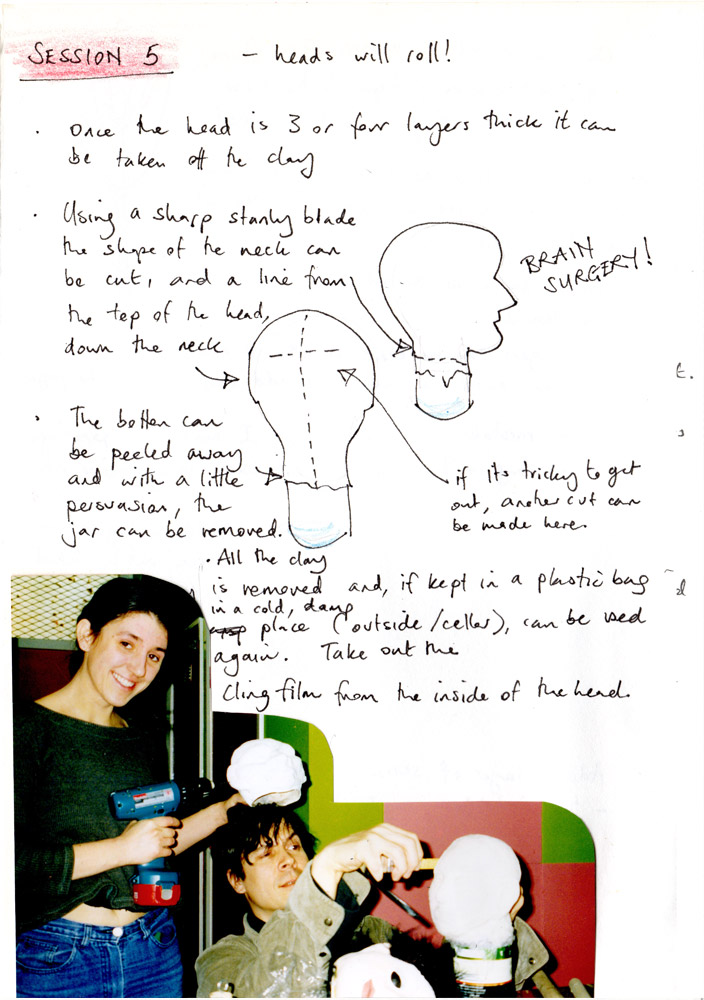 SESSION 5 - heads will roll!
. Once the head is 3 or four layers thick it can
be taken off the clay
. Using a sharp stanly blade
the shape of the neck can
be cut, and a line from
the top of the head,
down the neck
BRAIN
SURGERY!
. The bottom can
be peeled away
and with a little
persuasion, the
jar can be removed.
if its tricky to get
out, another cut can
be made here.
. All the clay
is removed and, if kept in a plastic bag
in a cold, damp
place (outside/cellar), can be used
again. Take out the
Cling film from the inside of the head.
t.
s
d